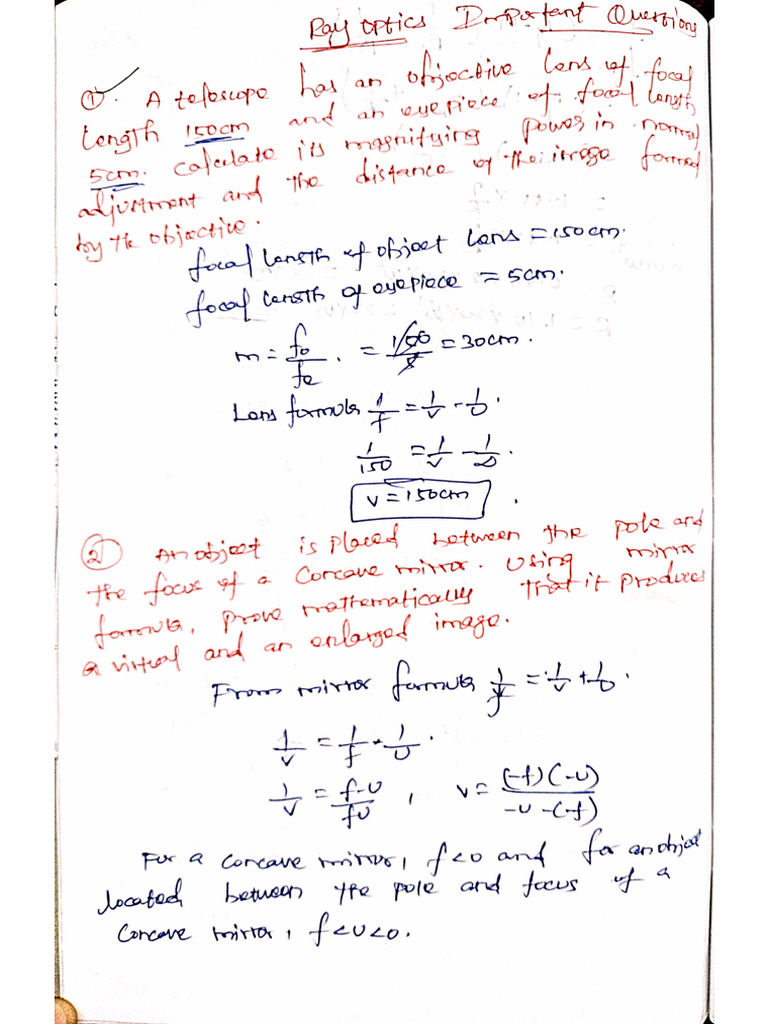 Ray optics Important Questions
①. A telescope has an objective lens of focal
length 150cm and an eyepiece of focal length
5cm. calculate its magnifying power in normal
adjustment and the distance of the image formed
by the objective.
focal length of object lens = 150cm.
focal length of eyepiece = 5cm.
m = fo/fe . = 150/5 = 30cm.
Lens formula 1/f = 1/v - 1/u.
1/150 = 1/v - 1/∞.
v = 150cm .
② An object is placed between the pole and
the focus of a concave mirror. Using mirror
formula, prove mathematically that it produces
a virtual and an enlarged image.
From mirror formula 1/f = 1/v + 1/u.
1/v = 1/f - 1/u.
1/v = f-u/fu , v = (-f)(-u)/-u-(-f)
For a concave mirror, f<0 and for an object
located between the pole and focus of a
concave mirror, f<u<0.